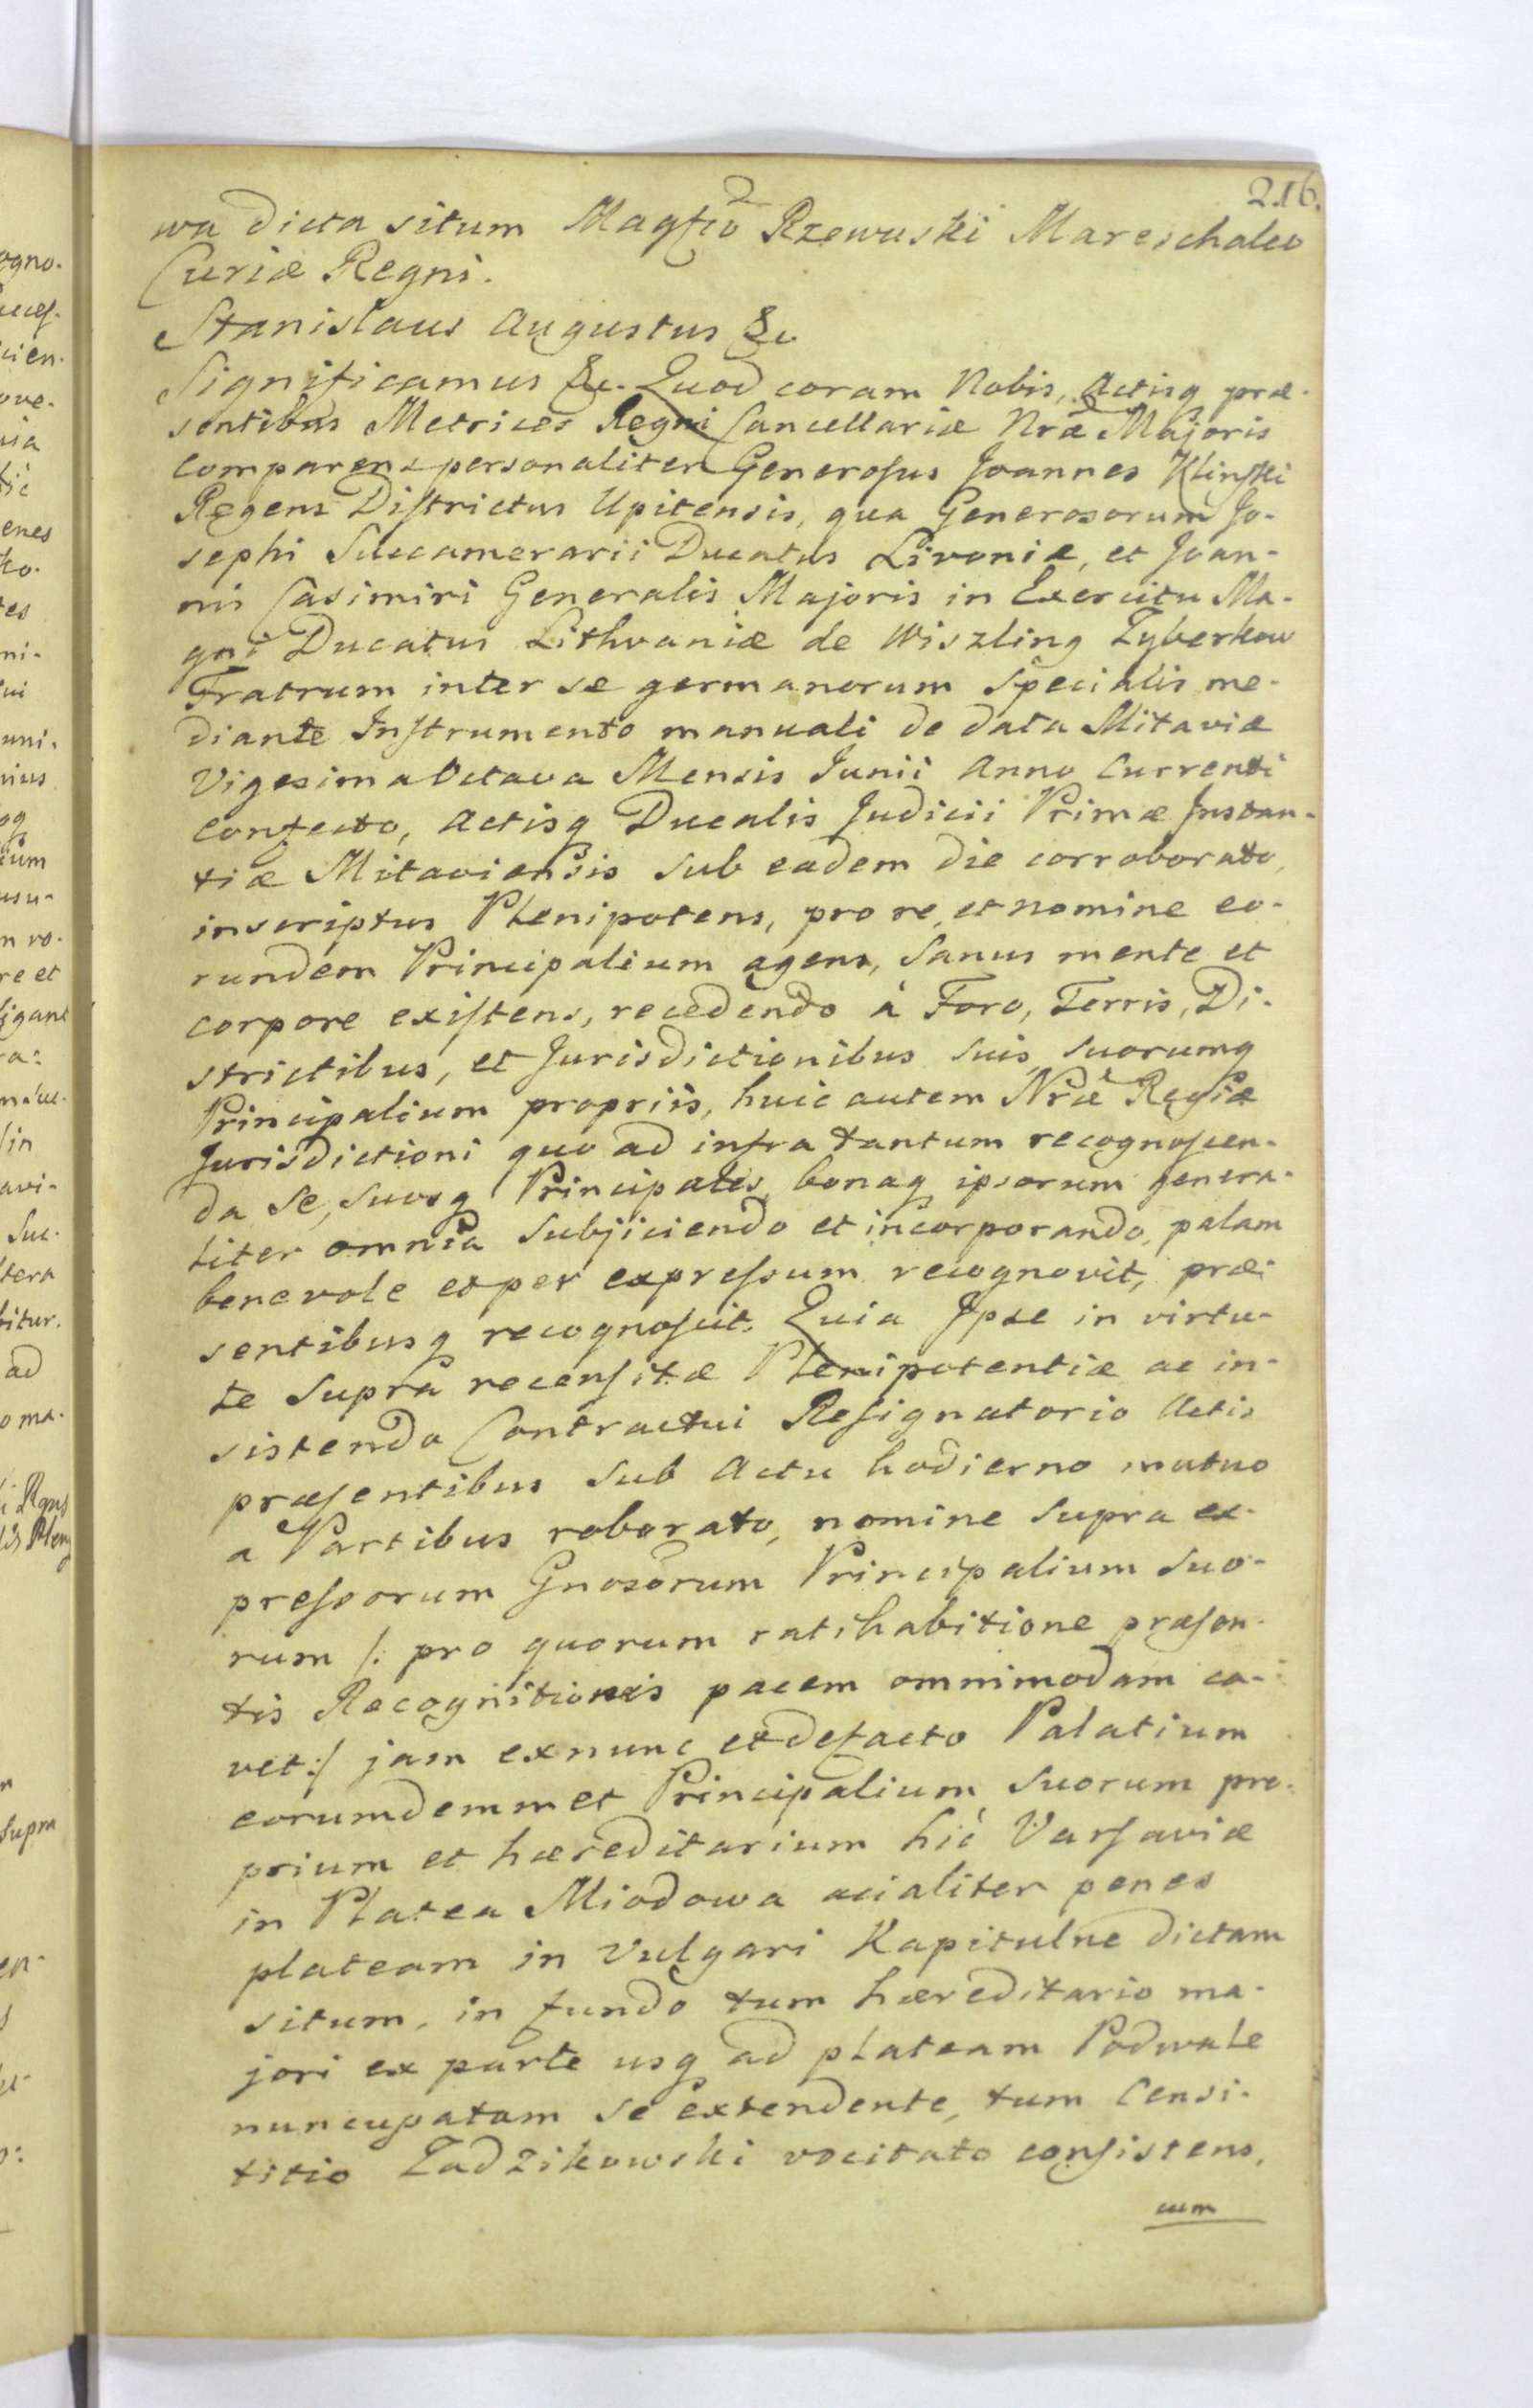 216.
wa dicta situm Magfco Rzewuski Mareschalco
Curiæ Regni.
Stanislaus Augustus &c
Significamus &c. Quod coram Nobis, Actisq præ-
sentibus Metrices Regni Cancellariæ Nræ Majoris
comparens personaliter Generosus Joannes Klinski
Regens Districtus Upitensis, qua Generosorum Jo-
sephi Succamerarii Ducatus Livoniæ, et Joan-
nis Casimiri Generalis Majoris in Exercitu Ma-
gni Ducatus Lithvaniæ de Wiszling Zyberkow
Fratrum inter se germanorum Specialis me-
diante Instrumento manuali de data Mitaviæ
Vigesima Octava Mensis Junii Anno Currenti
confecto, Actisq Ducalis Judicii Primæ Instan-
tiæ Mitaviensis sub eadem die corroborato,
inscriptus Plenipotens, pro re, et nomine eo-
rundem Principalium agens, Sanus mente et
corpore existens, recedendo à Foro, Terris, Di-
strictibus, et Jurisdictionibus suis, suorumq
Principalium propriis, huic autem Nræ Regiæ
Jurisdictioni quo ad infra tantum recognoscen-
da Se, suosq Principales, bonaq ipsorum genera-
liter omnia Subjiciendo et incorporando, palam
benevole et per expressum recognovit, præ-
sentibusq recognoscit. Quia Ipse in virtu-
te Supra recensitæ Plenipotentiæ ac in-
sistendo Contractui Resignatorio Actis
præsentibus sub Actu hodierno mutuo
a Partibus roborato, nomine Supra ex-
pressorum Gnosorum Principalium Suo-
rum /: pro quorum ratihabitione præsen-
tis Recognitionis pacem omnimodam ca-
vet :/ jam exnunc et defacto Palatium
eorumdemmet Principalium Suorum pro-
prium et hæreditarium hic Varsaviæ
in Platea Miodowa acialiter penes
plateam in Vulgari Kapitulne dictam
situm, in fundo tum hæreditario ma-
jori ex parte usq ad plateam Podwale
nuncupatam se extendente, tum Censi-
titio Zadzikowski vocitato consistens,
cum